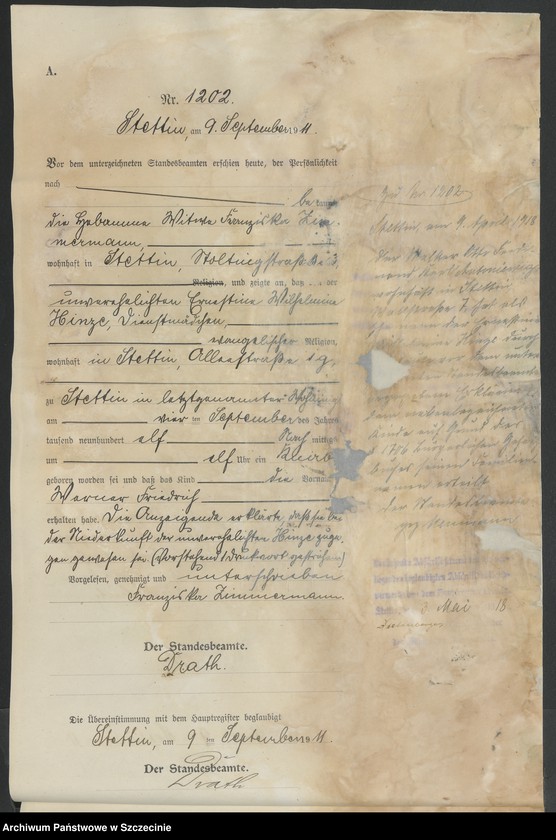 A.
Nr. 1202.
Stettin, am 9. September 1911.
Vor dem unterzeichneten Standesbeamten erschien heute, der Persönlichkeit
nach be kannt
die Hebamme Witwe Franziska Zim-
mermann,
wohnhaft in Stettin, Stoltingstraße
Religion, und zeigte an, daß von der
unverehelichten Ernestine Wilhelmine
Hinze, Dienstmädchen,
evangelischer Religion,
wohnhaft in Stettin, Alleestraße
zu Stettin in letztgenannter Wohnung
am vier ten September des Jahres
tausend neunhundert elf Nach mittags
um elf Uhr ein Knabe
geboren worden sei und daß das Kind die Vornamen
Werner Friedrich
erhalten habe. Die Anzeigende erklärte, daß sie bei
der Niederkunft der unverehelichten Hinze zuge-
gen gewesen sei. (Vorstehend 1 Druckwort gestrichen)
Vorgelesen, genehmigt und unterschrieben
Franziska Zimmermann.
Der Standesbeamte.
Drath.
Die Übereinstimmung mit dem Hauptregister beglaubigt
Stettin, am 9 ten September 1911.
Der Standesbeamte.
Drath
Zu Nr 1202
Stettin, am 9. April 1918
Der
wohnhaft in Stettin
hat als
der Ernestine
Hinze durch
vor dem unter
Standesbeamten
Erklärung
dem nebenbezeichneten
Kinde auf Grund des
§ 1706 Bürgerlichen Gesetz
buches seinen Familien
namen erteilt
Der Standesbeamte
Mai 18.
Archiwum Państwowe w Szczecinie